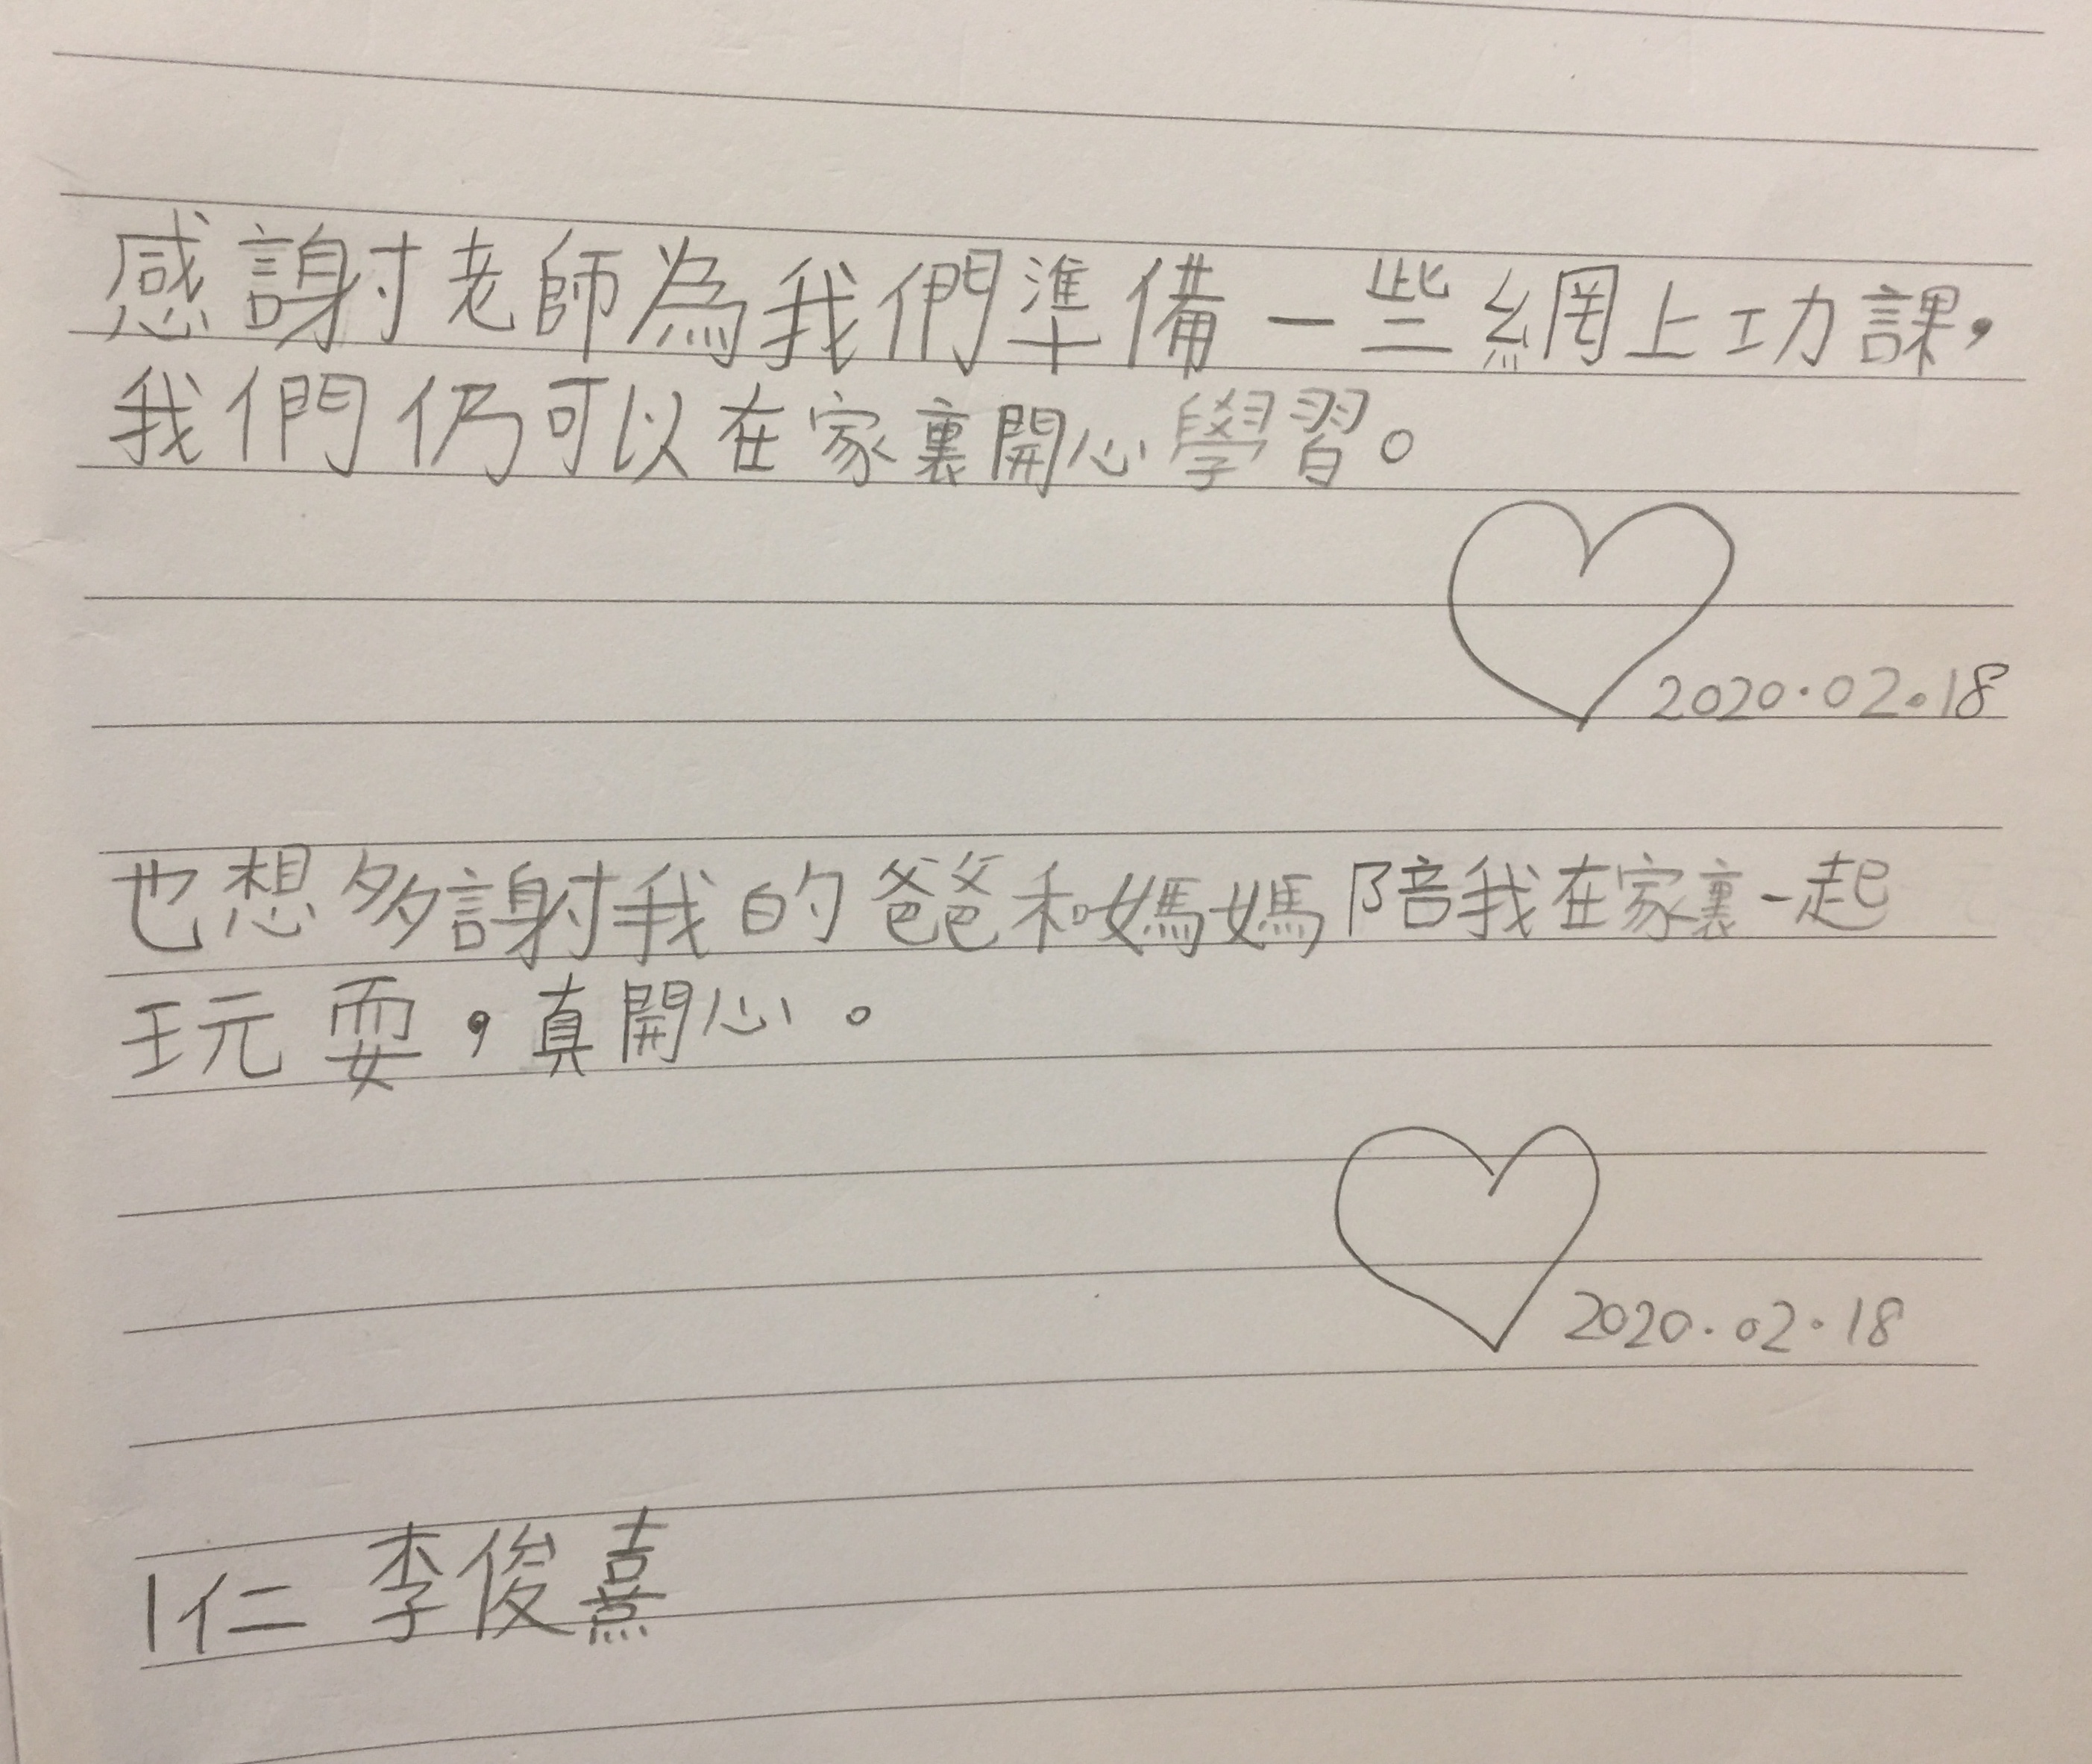 感謝老師為我們準備一些網上功課，
我們仍可以在家裏開心學習。
2020.02.18
也想多謝我的爸爸和媽媽陪我在家裏一起
玩耍，真開心。
2020.02.18
1仁 李俊熹